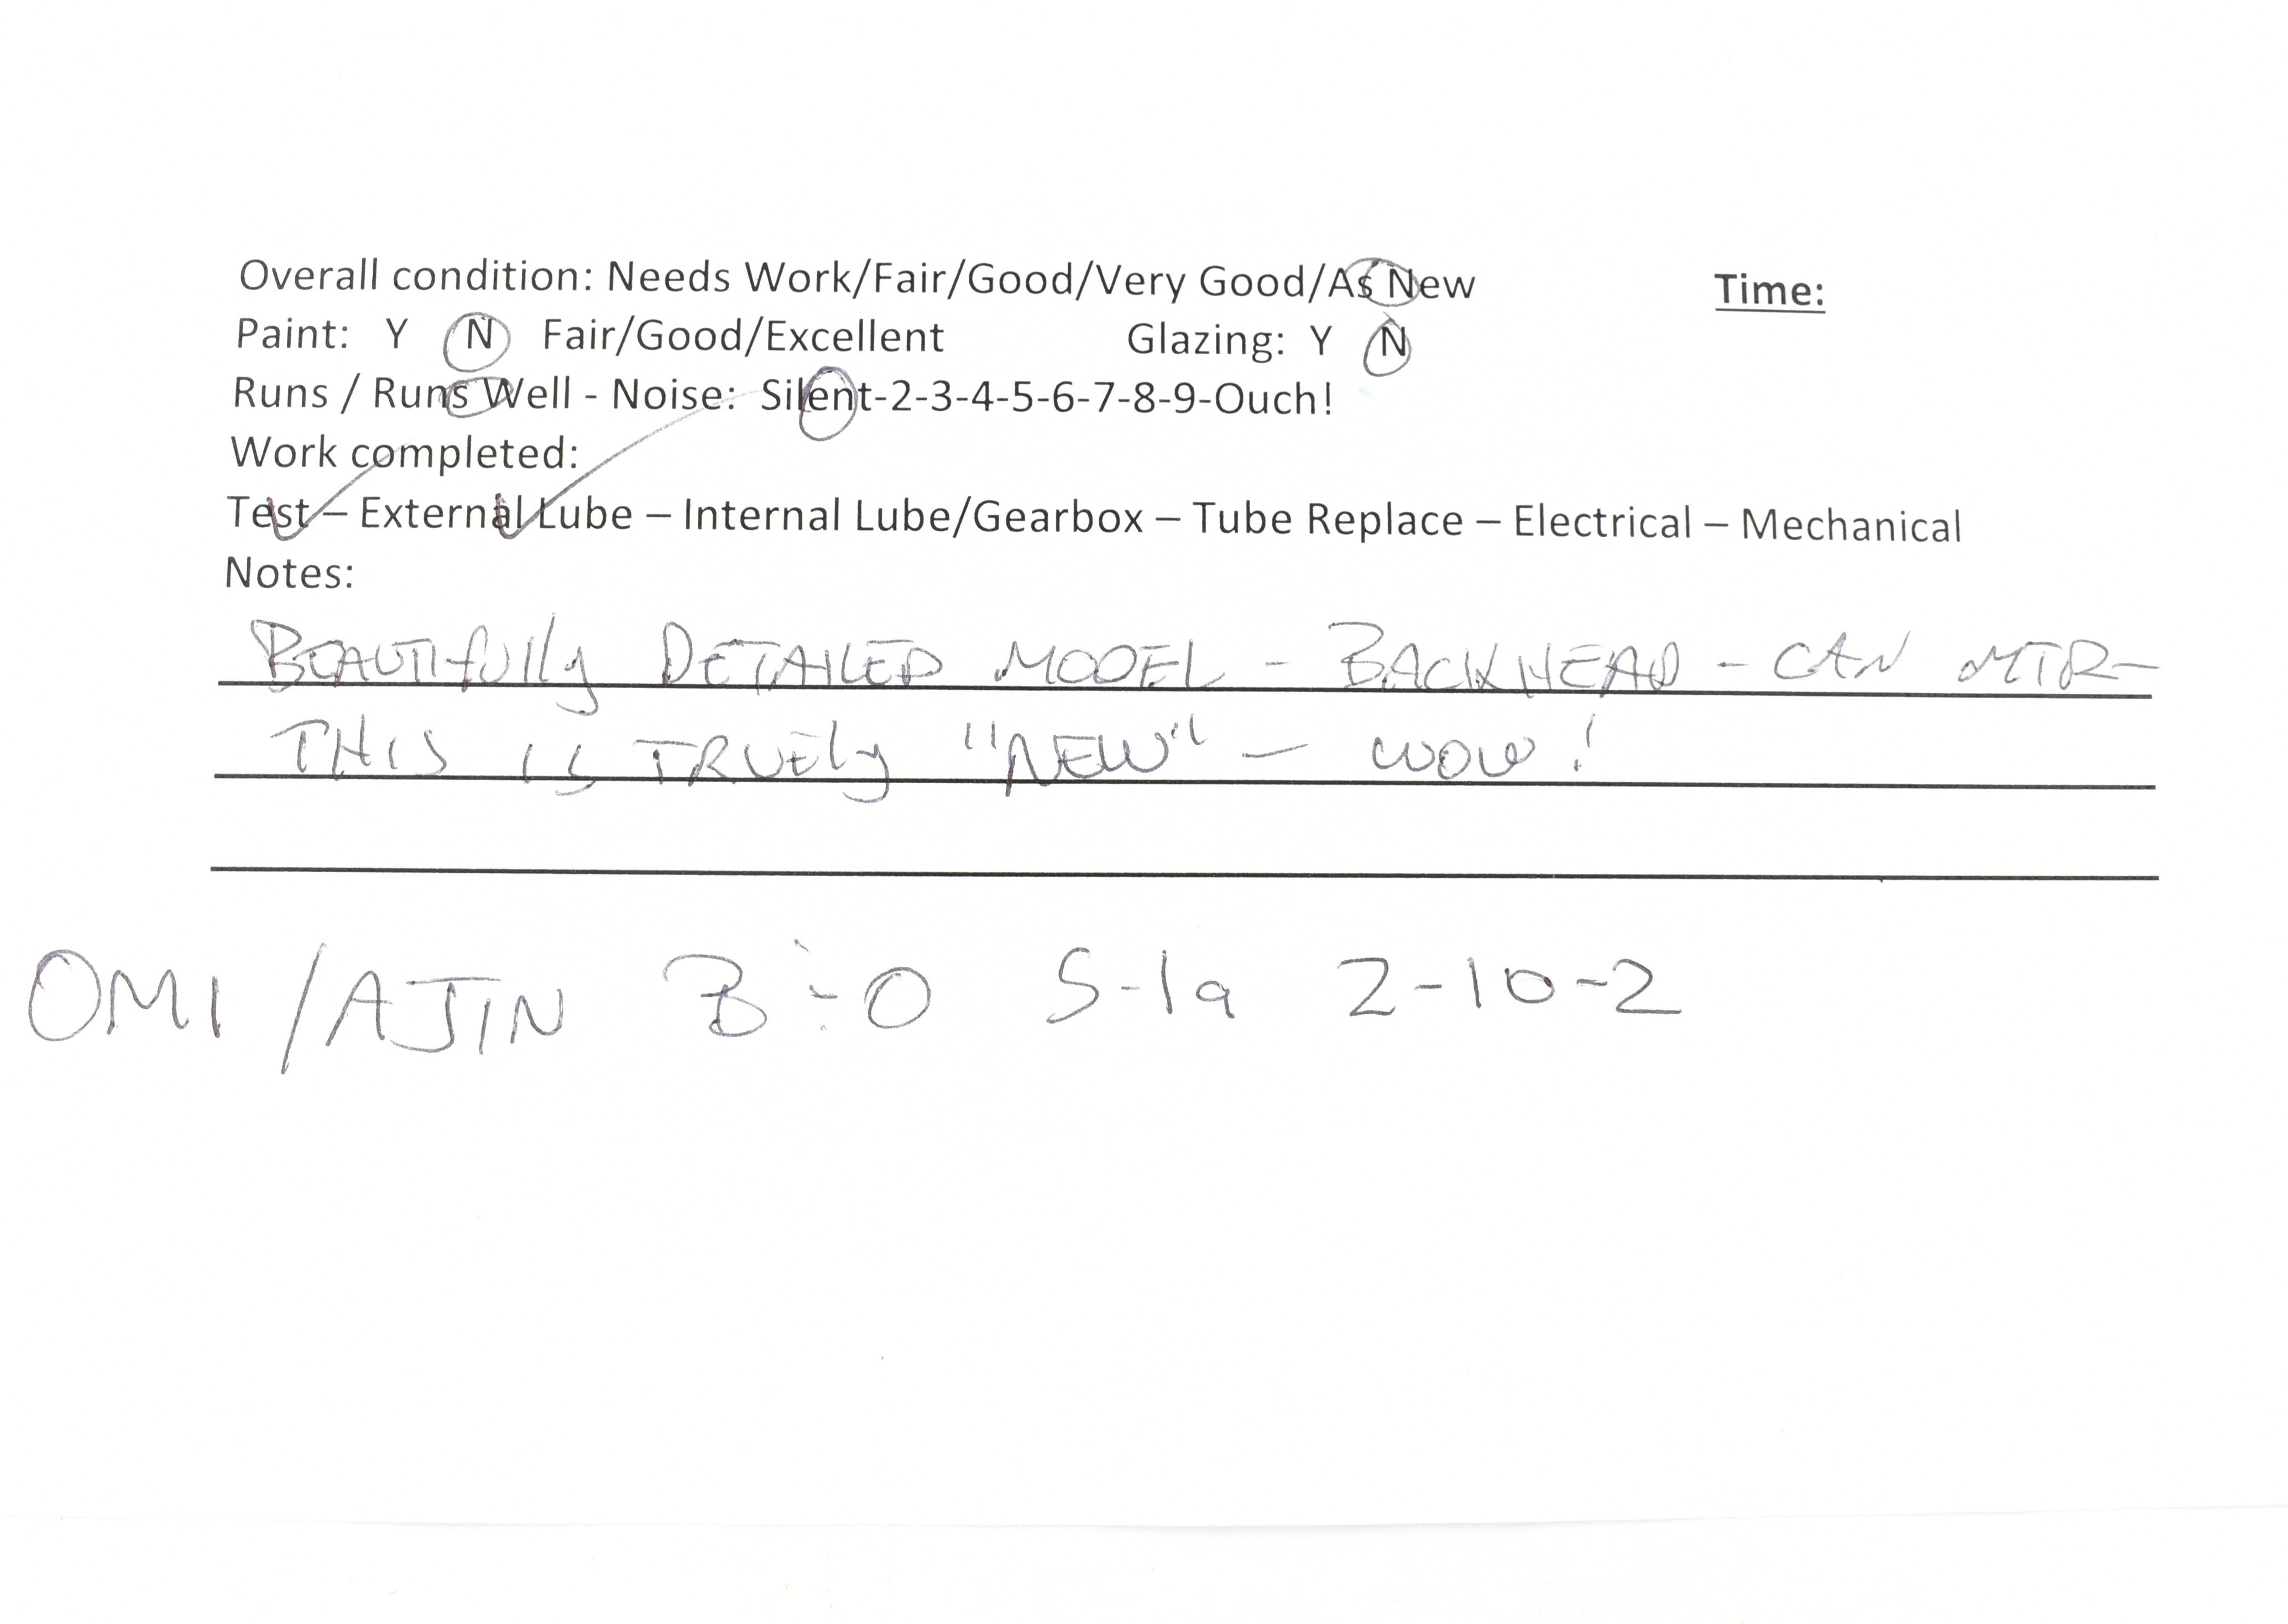 Overall condition: Needs Work/Fair/Good/Very Good/As New Time:
Paint: Y N Fair/Good/Excellent Glazing: Y N
Runs / Runs Well - Noise: Silent-2-3-4-5-6-7-8-9-Ouch!
Work completed:
Test – External Lube – Internal Lube/Gearbox – Tube Replace – Electrical – Mechanical
Notes:
BEAUTIfully DETAILED MODEL - BACKHEAD - CAN MTR-
THIS IS TRUEly "NEW" - WOW!
OMI/AJIN B&O S-1a 2-10-2